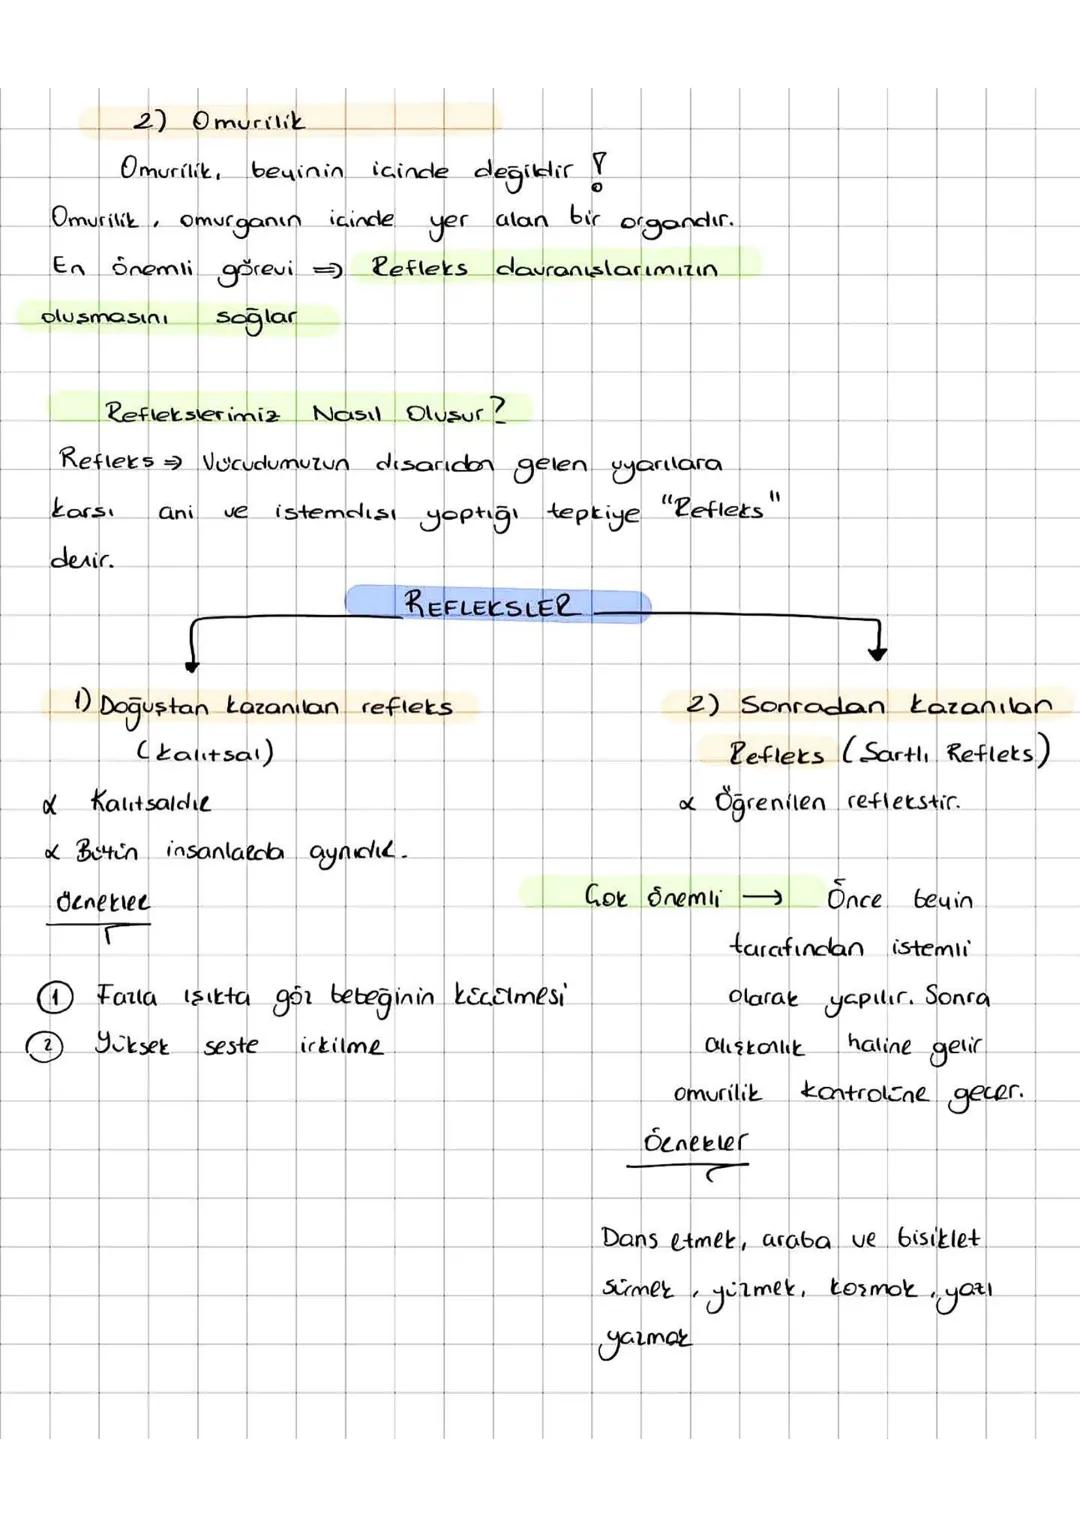 2) Omurilik
Omurilik, beyinin icinde değildir !
Omurilik, omurganın icinde yer alan bir organdır.
En önemli görevi ⇒ Refleks davranıslarımızın
olusmasını sağlar
Reflekslerimiz Nasıl Olusur?
Refleks ⇒ Vücudumuzun dısarıdan gelen uyarılara
karsı ani ve istemdısı yaptığı tepkiye "Refleks"
denir.
REFLEKSLER
1) Doğuştan kazanılan refleks
(kalıtsal)
α Kalıtsaldır
α Bütün insanlarda aynıdır.
Örnekler
① Fazla ışıkta göz bebeğinin kücülmesi
② Yüksek seste irkilme
2) Sonradan kazanılan
Refleks (Sartlı Refleks)
α Öğrenilen reflekstir.
Çok önemli → Önce beyin
tarafından istemli
olarak yapılır. Sonra
alışkanlık haline gelir
omurilik kontrolüne gecer.
Örnekler
Dans etmek, araba ve bisiklet
sürmek, yüzmek, kosmak, yazı
yazmak